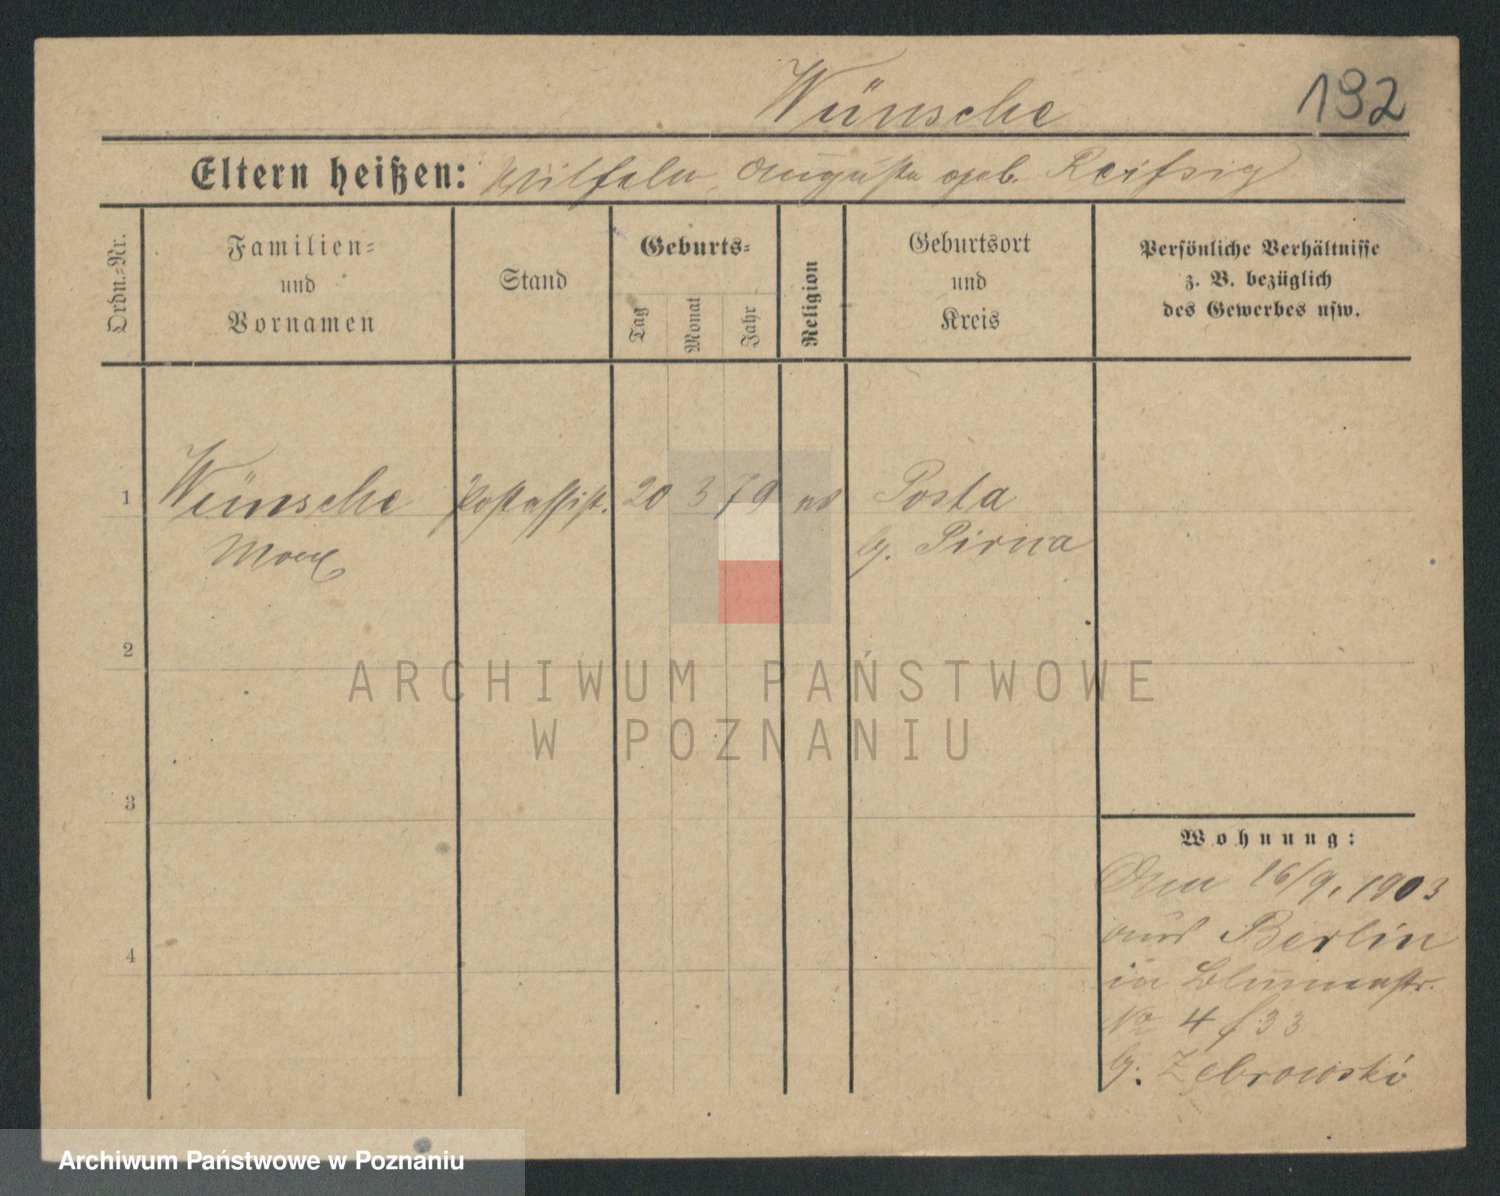 Wünsche
192
Eltern heißen: Wilhelm, Auguste geb. Reißig
Ordn.-Nr.
Familien-
und
Vornamen
Stand
Geburts-
Tag
Monat
Jahr
Religion
Geburtsort
und
Kreis
Persönliche Verhältnisse
z. B. bezüglich
des Gewerbes usw.
1 Wünsche Postassist. 20 3 79 ev Posta
Max b/. Pirna
2
3
4
Wohnung:
Am 16/9. 1903
aus Berlin
in Blumenstr.
No 4 f 33
b/. Zebrowski
ARCHIWUM PAŃSTWOWE
W POZNANIU
Archiwum Państwowe w Poznaniu